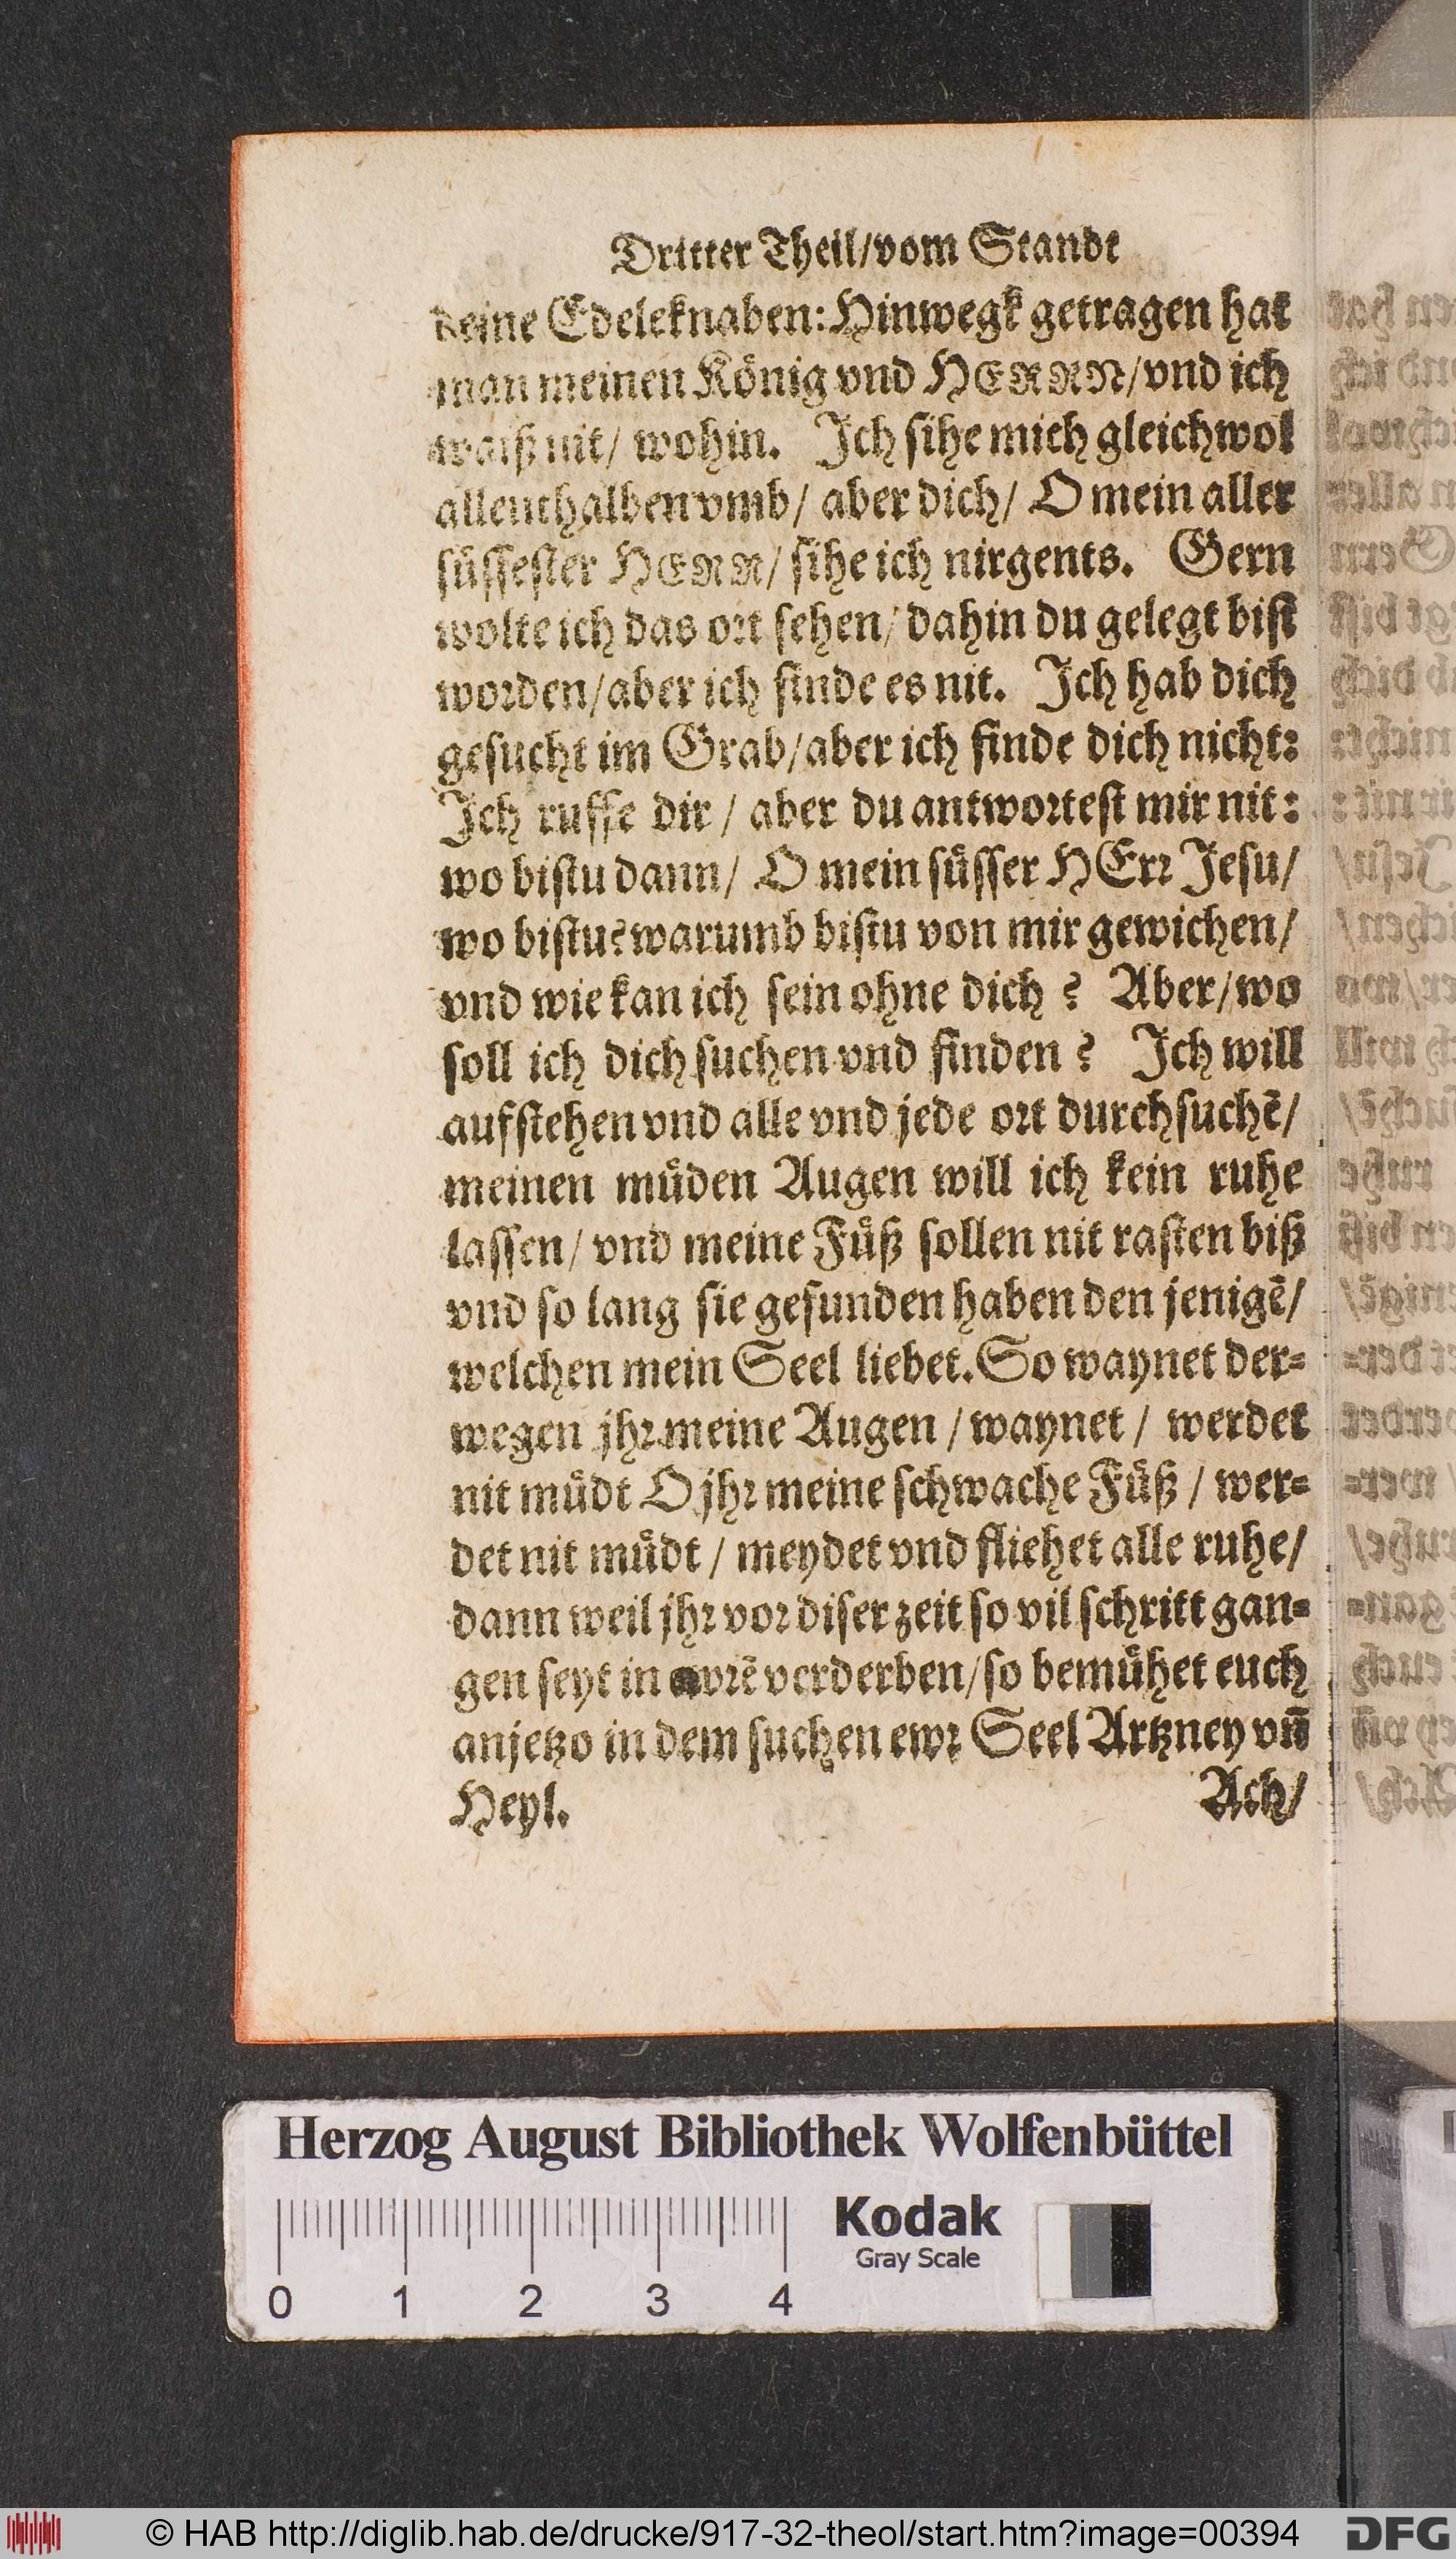 Dritter Theil/vom Standt
deine Edeleknaben: Hinwegk getragen hat
man meinen König vnd HERRN/vnd ich
waiß nit/ wohin. Ich sihe mich gleichwol
allenthalben vmb/ aber dich/ O mein aller
süssester HERR/ sihe ich nirgents. Gern
wolte ich das ort sehen/ dahin du gelegt bist
worden/aber ich finde es nit. Ich hab dich
gesucht im Grab/aber ich finde dich nicht:
Ich ruffe dir / aber du antwortest mir nit:
wo bistu dann/ O mein süsser HErr Jesu/
wo bistu? warumb bistu von mir gewichen/
vnd wie kan ich sein ohne dich ? Aber/wo
soll ich dich suchen vnd finden ? Ich will
aufstehen vnd alle vnd jede ort durchsuchē/
meinen müden Augen will ich kein ruhe
lassen/ vnd meine Füß sollen nit rasten biß
vnd so lang sie gefunden haben den jenigē/
welchen mein Seel liebet. So waynet der=
wegen jhr meine Augen / waynet / werdet
nit müdt O jhr meine schwache Füß / wer=
det nit müdt / meydet vnd fliehet alle ruhe/
dann weil jhr vor diser zeit so vil schritt gan=
gen seyt in verderben/so bemühet euch
anjetzo in dem suchen ewr Seel Artzney vn̄
Heyl. Ach/
Herzog August Bibliothek Wolfenbüttel
Kodak
Gray Scale
0 1 2 3 4
© HAB http://diglib.hab.de/drucke/917-32-theol/start.htm?image=00394
DFG